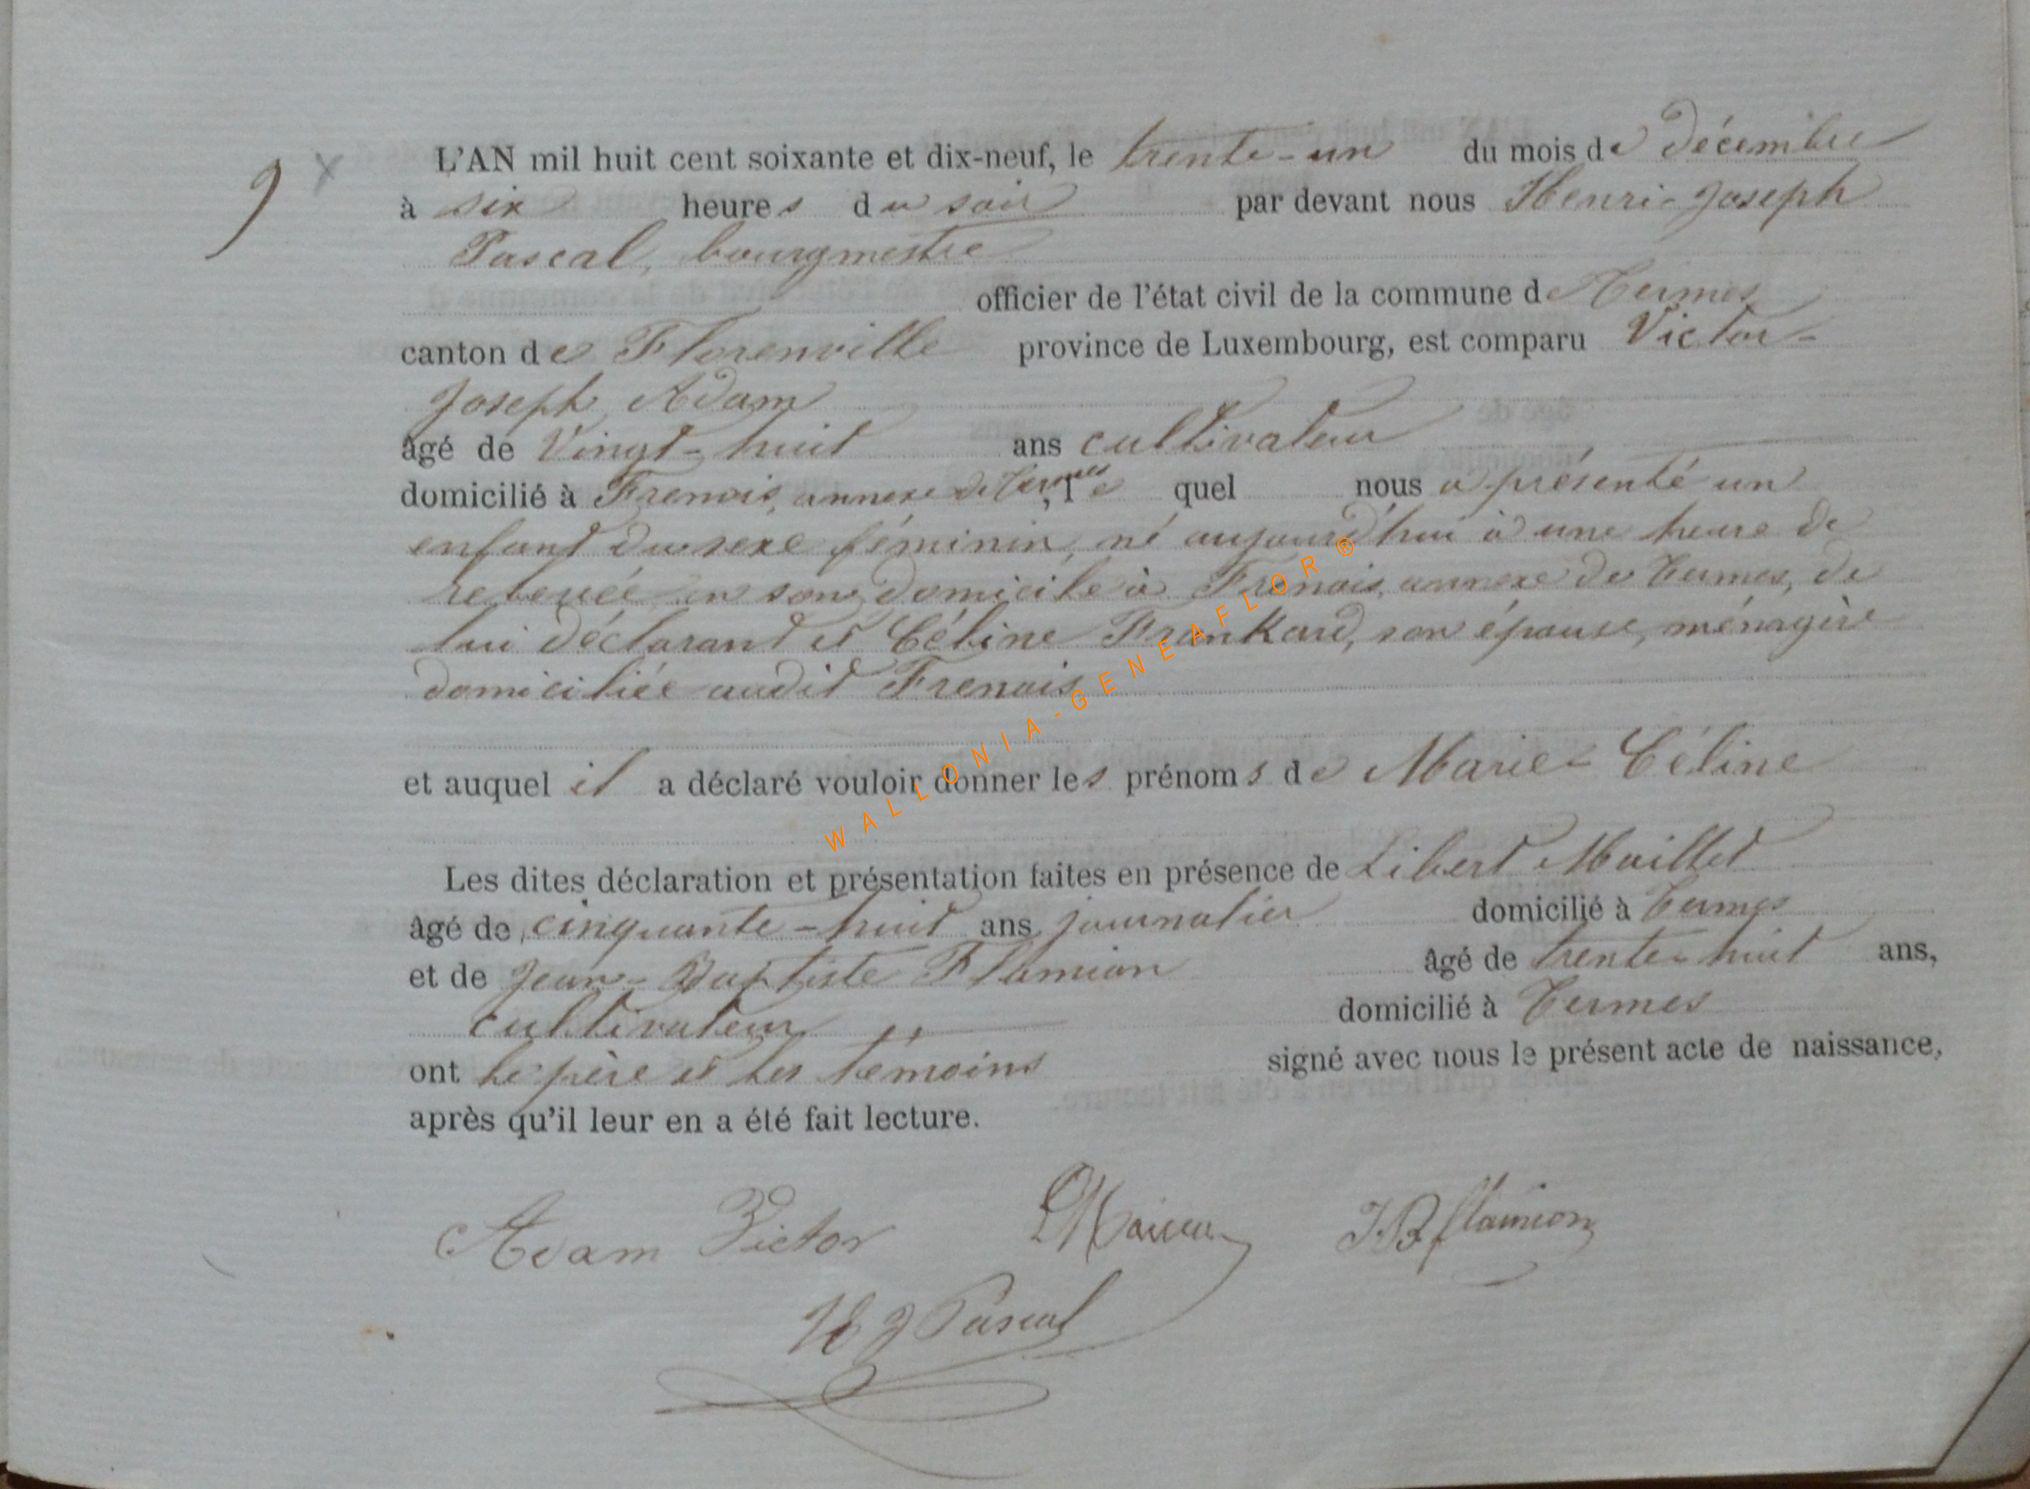 9 x
L'AN mil huit cent soixante et dix-neuf, le trente-un du mois de décembre
à six heures du soir par devant nous Henri-Joseph
Pascal, bourgmestre
officier de l'état civil de la commune de Termes
canton de Florenville province de Luxembourg, est comparu Victor-
Joseph Adam
âgé de Vingt-huit ans cultivateur
domicilié à Frenois, annexe de Termes, le quel nous a présenté un
enfant du sexe féminin, né aujourd'hui à une heure de
relevée en son domicile à Frenois, annexe de Termes, de
lui déclarant et Céline Frankard, son épouse, ménagère
domiciliée audit Frenois
et auquel il a déclaré vouloir donner les prénoms de Marie-Céline
Les dites déclaration et présentation faites en présence de Libert Maillet
âgé de cinquante-huit ans journalier domicilié à Termes
et de Jean-Baptiste Flamion âgé de trente-huit ans,
cultivateur domicilié à Termes
ont le père et les témoins signé avec nous le présent acte de naissance,
après qu'il leur en a été fait lecture.
Adam Victor JB flamion
H J Pascal
WALLONIA-GENEAFLOR ®